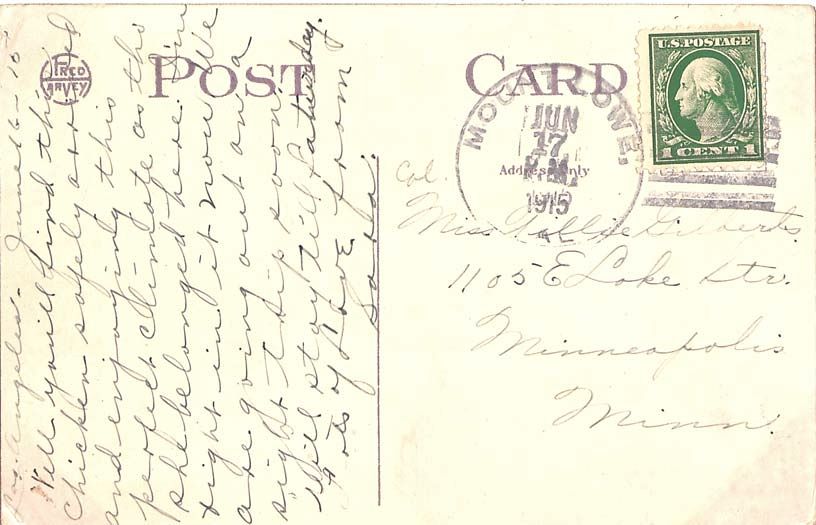 FRED HARVEY
POST CARD
Address Only
U.S. POSTAGE
1 CENT 1
MOUNT LOWE.
JUN
17
1915
Los Angeles - June 16 - 15
Well you'll find this
chicken safely arrived
and enjoying this
perfect climate as tho
she belonged here. Am
right in it now. We
are going out on a
sight trip soon
Will stay till Saturday.
Lots of love from
Col.
Miss Gilberts
1105 E Lake Str.
Minneapolis
Minn.